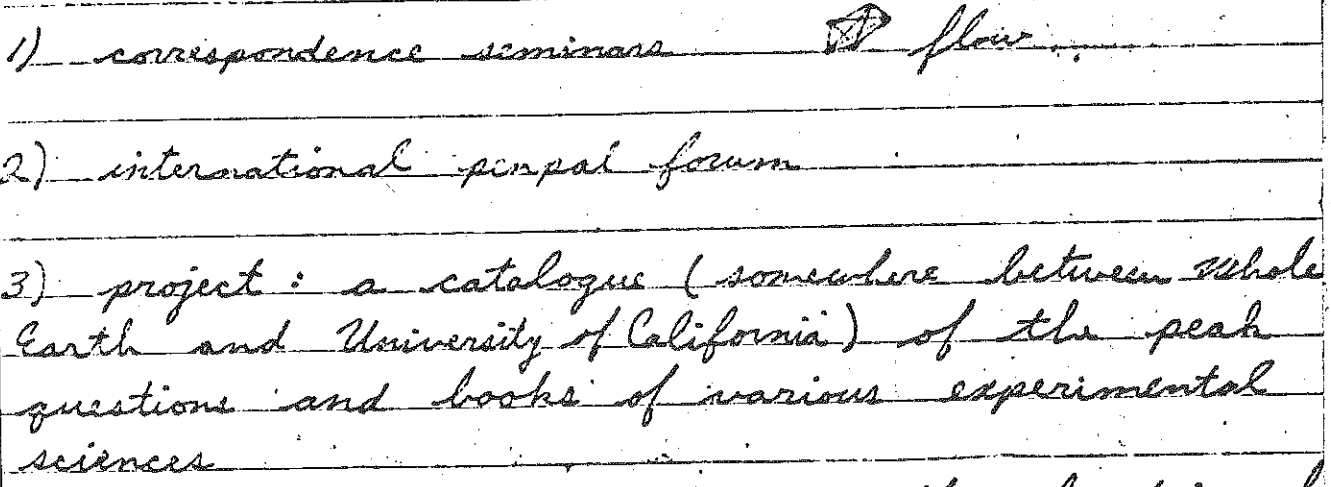 1) correspondence seminars flow
2) international penpal forum
3) project: a catalogue (somewhere between Whole
Earth and University of California) of the peak
questions and books of various experimental
sciences